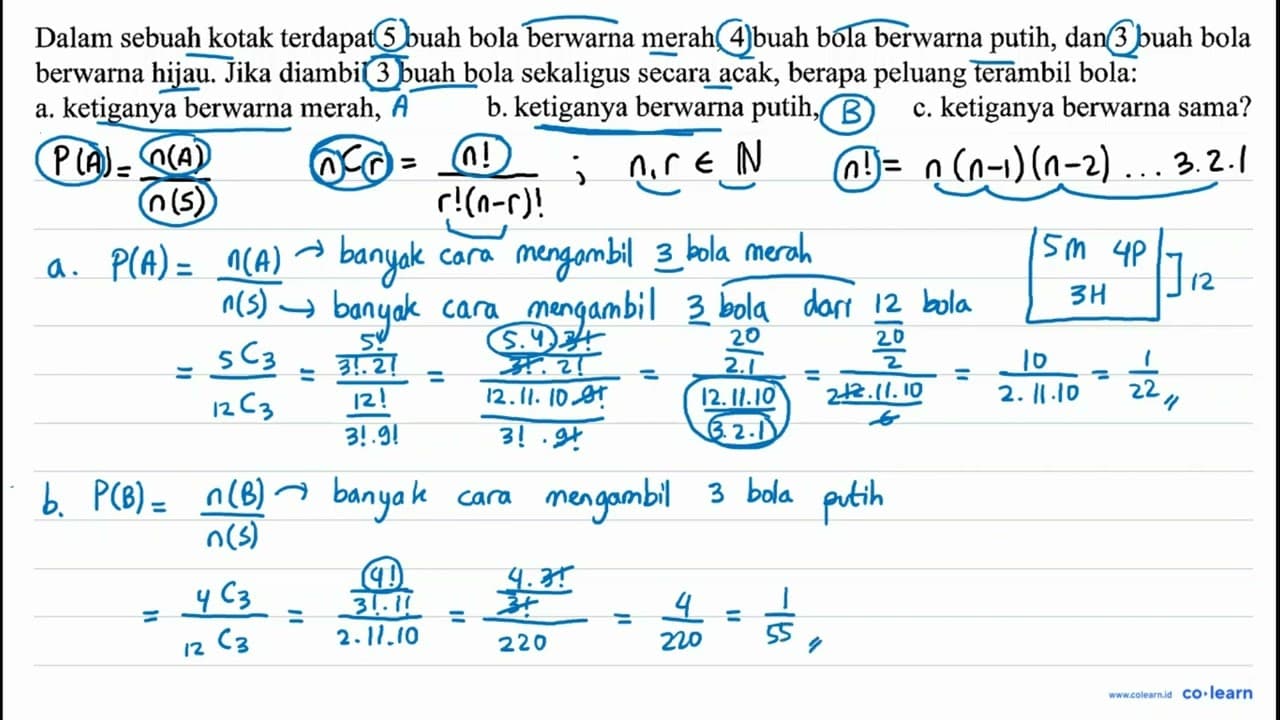 Dalam sebuah kotak terdapat 5 buah bola berwarna merah, 4 buah bola berwarna putih, dan 3 buah bola
berwarna hijau. Jika diambil 3 buah bola sekaligus secara acak, berapa peluang terambil bola:
a. ketiganya berwarna merah, A b. ketiganya berwarna putih, B c. ketiganya berwarna sama?
P(A) = n(A)/n(S) nCr = n!/r!(n-r)! ; n, r ∈ ℕ n! = n(n-1)(n-2)...3.2.1
a. P(A) = n(A) → banyak cara mengambil 3 bola merah
n(S) → banyak cara mengambil 3 bola dari 12 bola
5M 4P
3H ] 12
= 5C3/12C3 = (5!/3!.2!)/(12!/3!.9!) = (5.4.3!/3!.2!)/(12.11.10.9!/3!.9!) = (20/2.1)/(12.11.10/3.2.1) = (20/2)/(2 12.11.10/6) = 10/2.11.10 = 1/22
b. P(B) = n(B) → banyak cara mengambil 3 bola putih
n(S)
= 4C3/12C3 = (4!/3!.1!)/2.11.10 = (4.3!/3!)/220 = 4/220 = 1/55
www.colearn.id co·learn